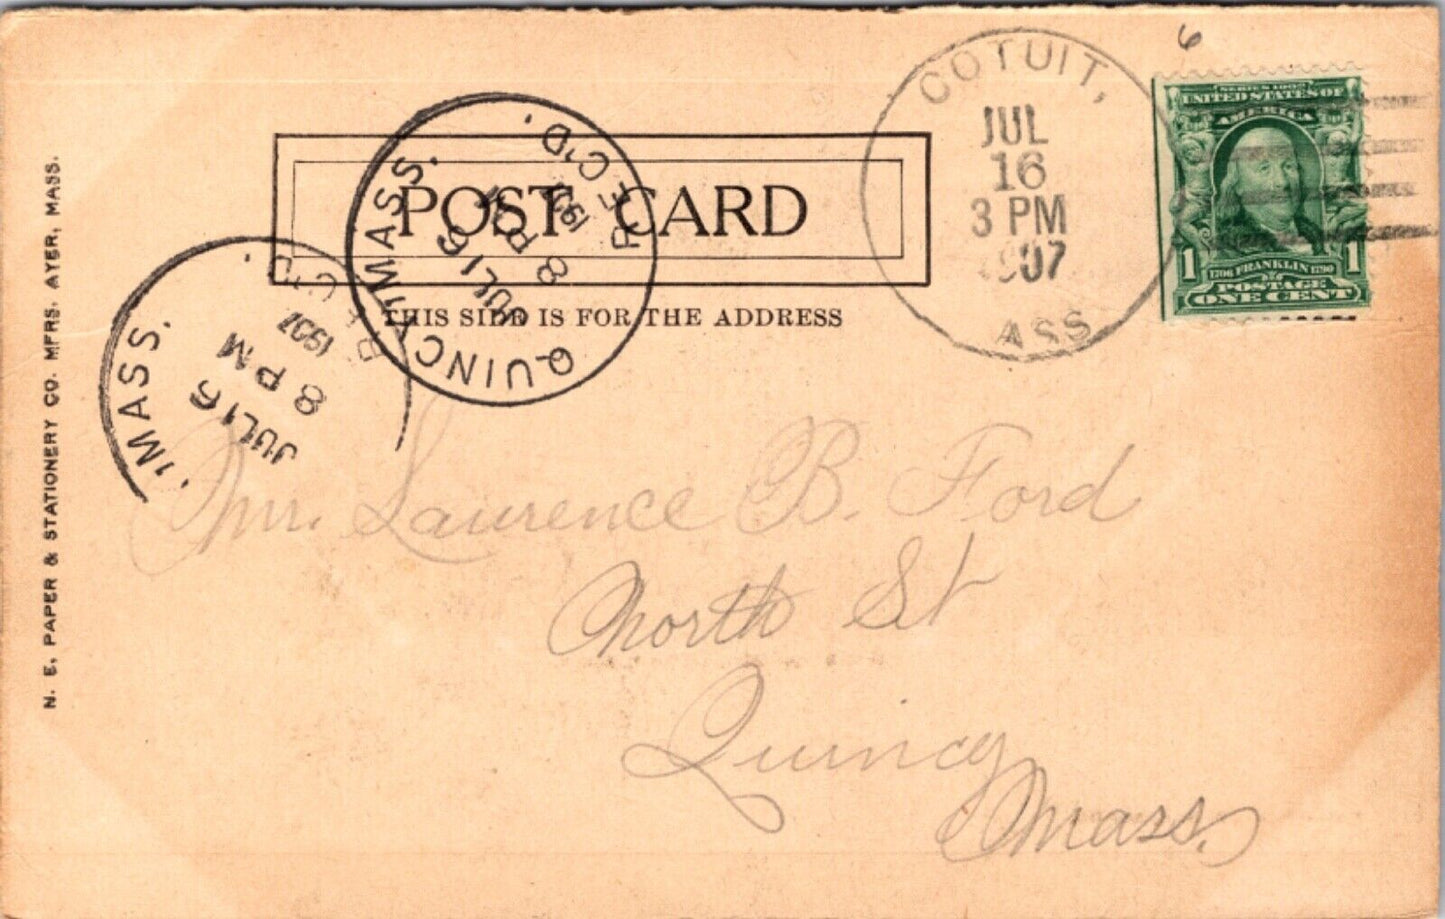 6
COTUIT,
JUL
16
3 PM
1907
ASS
SERIES 1902
UNITED STATES OF
AMERICA
1 1
1706 FRANKLIN 1790
POSTAGE
ONE CENT
POST CARD
THIS SIDE IS FOR THE ADDRESS
QUINCY MASS.
REC'D.
JUL 16
8 P
190
MASS.
REC'D
JUL 16
8 PM
1907
N. E. PAPER & STATIONERY CO. MFRS. AYER, MASS.
Mr. Laurence B. Ford
North St
Quincy
Mass.